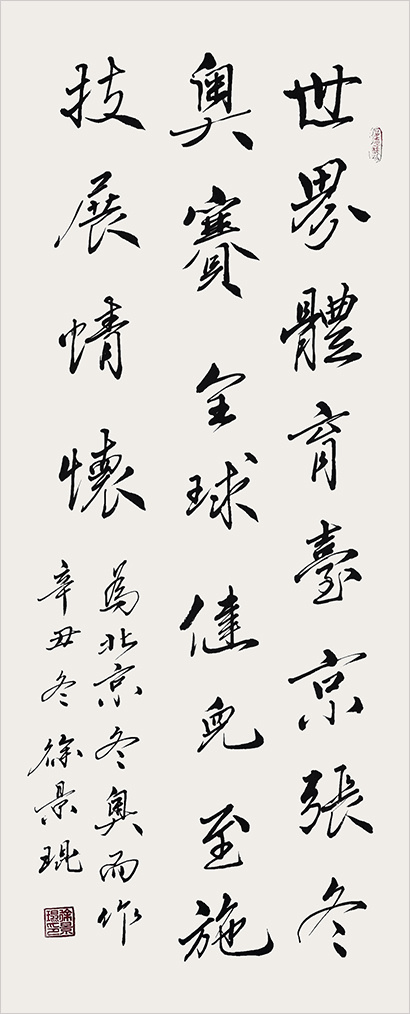 世界體育臺京張冬
奧賽全球健兒至施
技展情懷
為北京冬奧而作
辛丑冬徐景琨